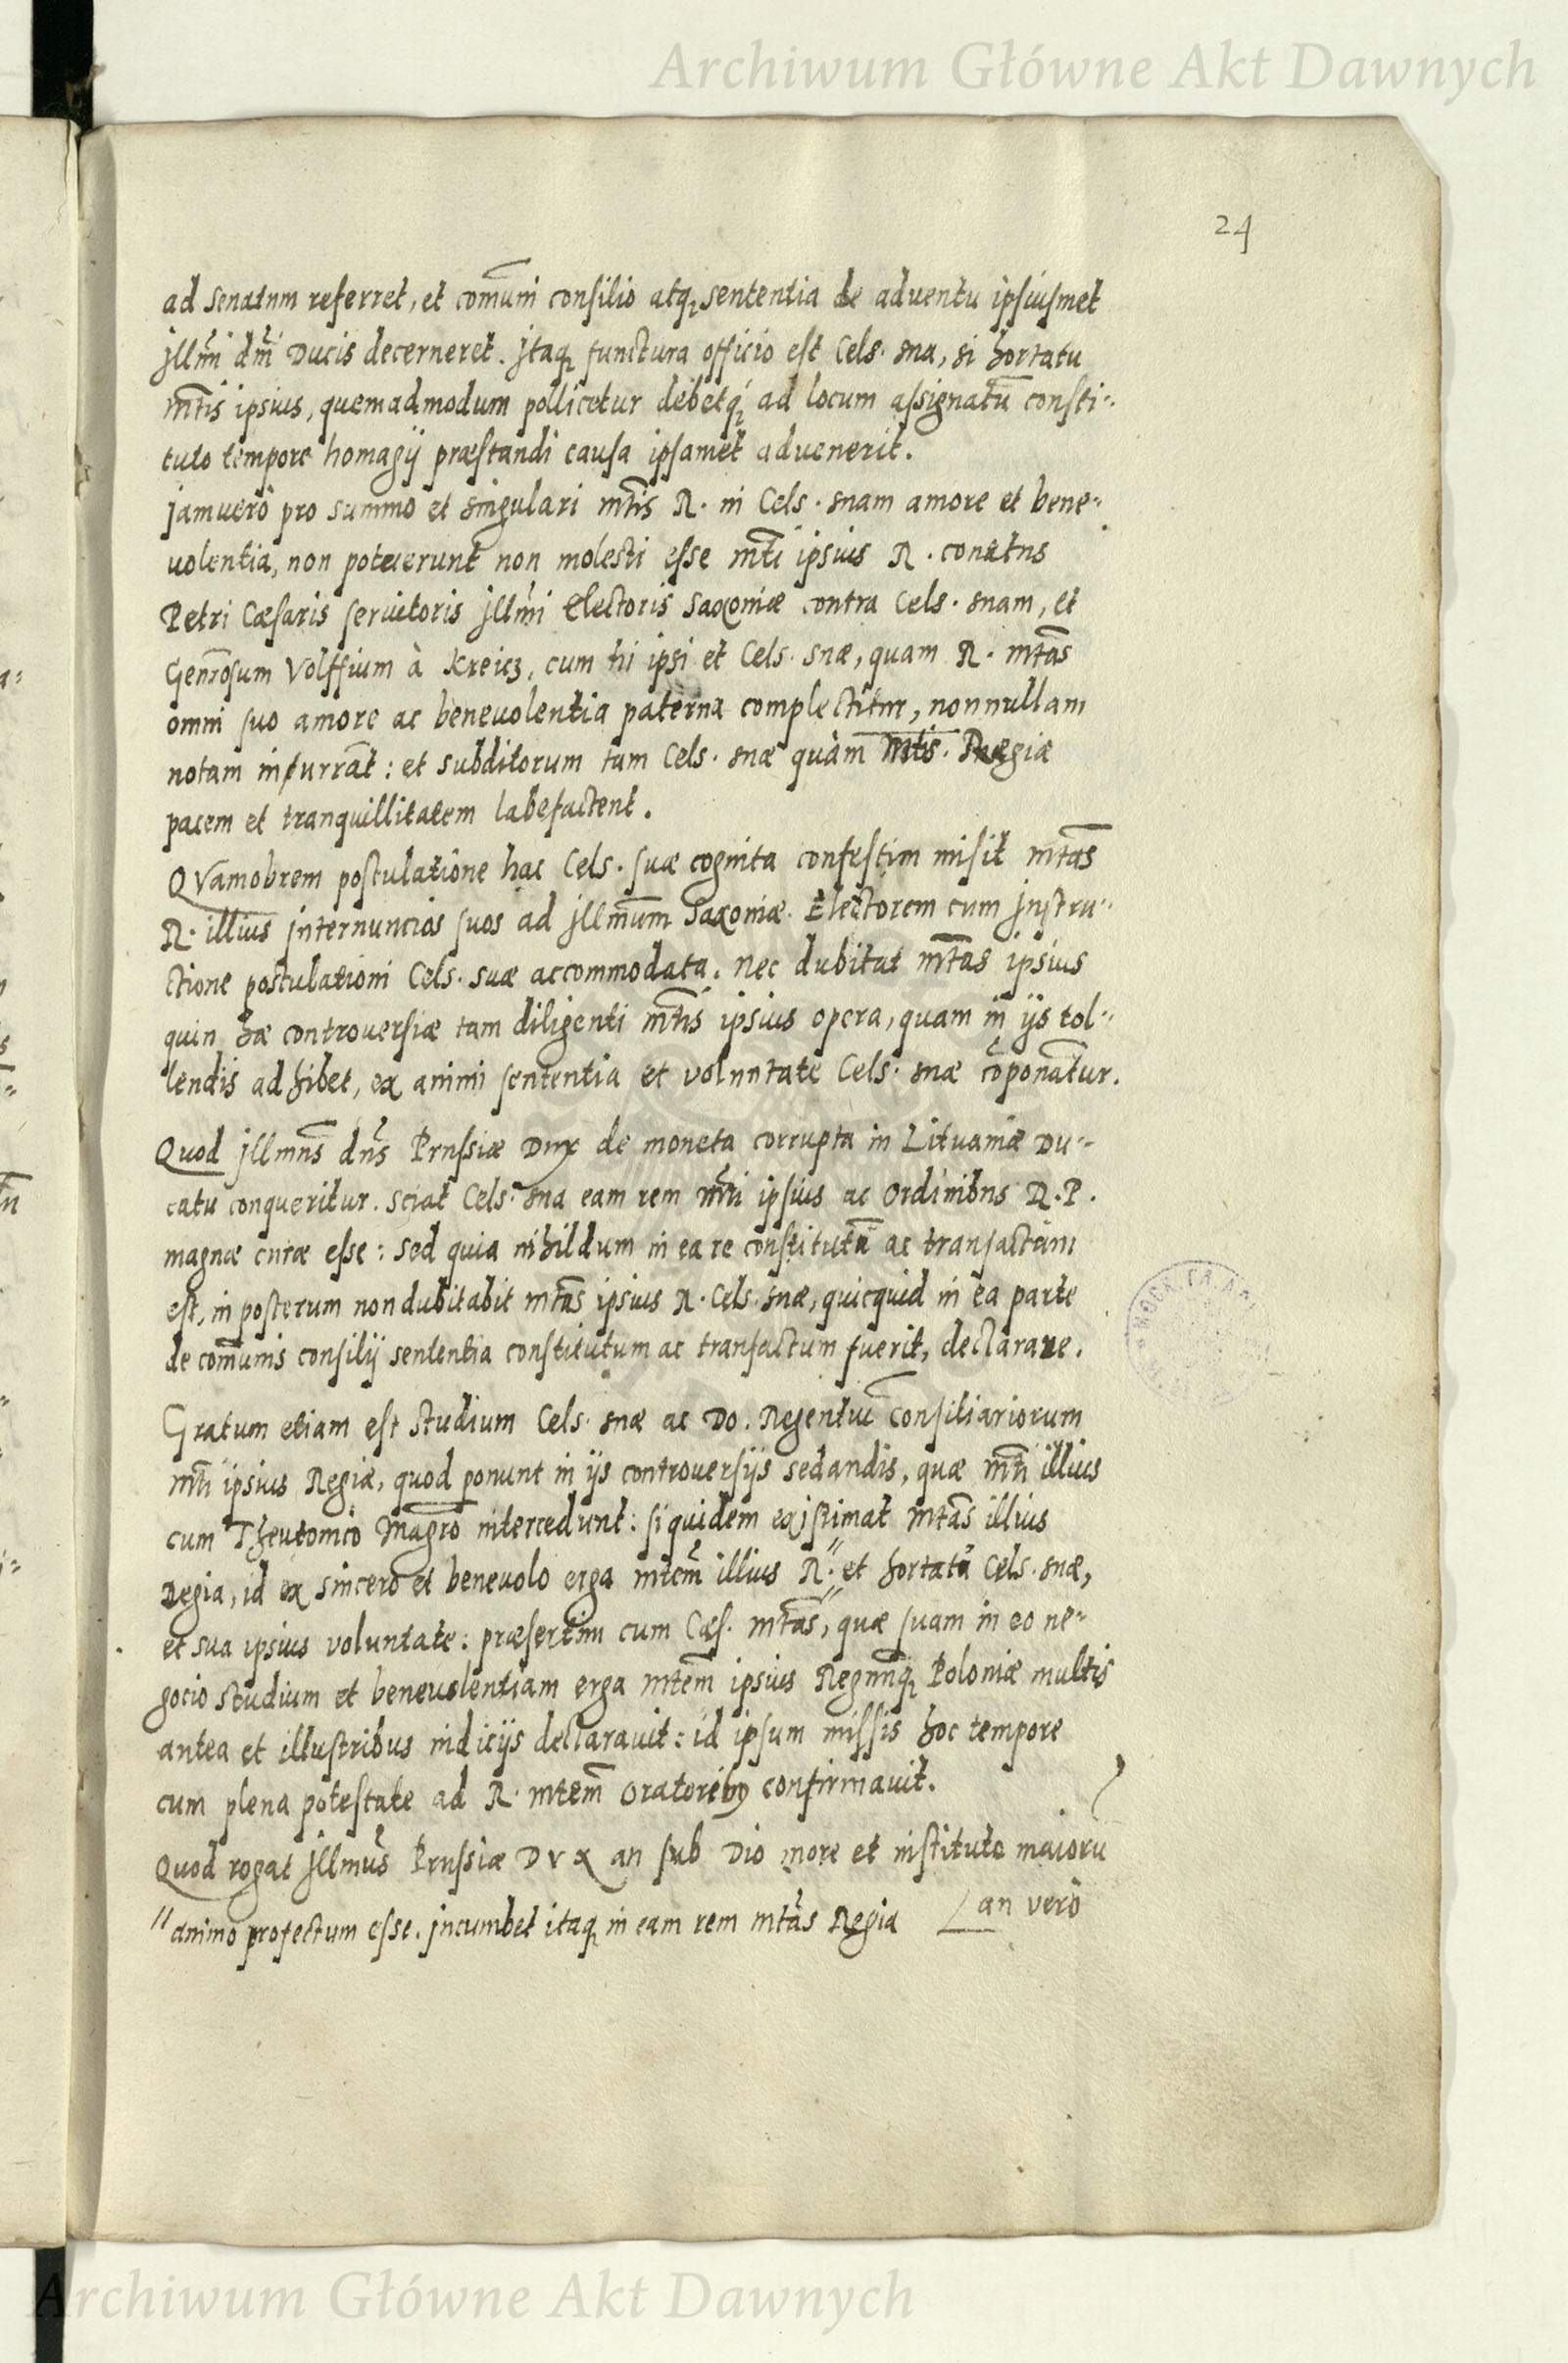 Archiwum Główne Akt Dawnych
24
ad Senatum referret, et com̄uni consilio atq; sententia de aduentu ipsiusmet
Jllm̄i dn̄i Ducis decerneret. Jtaq; functura officio est Cels. sua, si hortatu
Mt̄is ipsius, quemadmodum pollicetur debetq; ad locum assignatū consti-
tuto tempore homagij præstandi causa ipsamet aduenerit.
Jamuerò pro summo et singulari Mt̄is R. in Cels. suam amore et bene-
uolentia, non potuerunt non molesti esse Mt̄i ipsius R. conatus
Petri Cæsaris seruitoris Jllm̄i Electoris Saxoniæ contra Cels. suam, et
Gen̄rosum Volffium à Kreicz, cum hi ipsi et Cels. suæ, quam R. Mt̄as
omni suo amore ac beneuolentia paterna complectitur, nonnullam
notam inpurrāt: et subditorum tam Cels. suæ quàm Mt̄is. Regiæ
pacem et tranquillitatem labefactent.
QVamobrem postulatione hac Cels. suæ cognita confestim misit Mt̄as
R. illius Jnternuncios suos ad Jllm̄um Saxoniæ Electorem cum Jnstru-
ctione postulationi Cels. suæ accommodata. Nec dubitat Mt̄as ipsius
quin hæ controuersiæ tam diligenti Mt̄is ipsius opera, quam in ijs tol-
lendis adhibet, ex animi sententia et voluntate Cels. suæ cōponātur.
Quod Jllmn̄s dn̄s Prussiæ Dux de moneta corrupta in Lituaniæ Du-
catu conqueritur. Sciat Cels. sua eam rem Mt̄i ipsius ac Ordinibus R.P.
magnæ curæ esse: sed quia nihildum in ea re constitutū ac transactum
est, in posterum non dubitabit Mt̄as ipsius R. Cels. suæ, quicquid in ea parte
de com̄unis consilij sententia constitutum ac transactum fuerit, declarare.
Gratum etiam est studium Cels. suæ ac Do. Regentiū Consiliariorum
Mt̄i ipsius Regiæ, quod ponunt in ijs controuersijs sedandis, quæ Mt̄i illius
cum Theutonico Magr̄o intercedunt: siquidem existimat Mt̄as illius
Regia, id ex sincero et beneuolo erga Mtem̄ illius R. " et hortatu Cels. suæ,
et sua ipsius voluntate: præsertim cum Cæs. Mt̄as, quæ suam in eo ne-
gocio studium et beneuolentiam erga Mtem̄ ipsius Regnnq; Poloniæ multis
antea et illustribus indicijs declarauit: id ipsum missis hoc tempore
cum plena potestate ad R. Mtem̄ Oratorib9 confirmauit.
Quod rogat Jllmūs Prussiæ DVX an sub Dio more et instituto maiorū
an verò
" animo profectum esse. Jncumbet itaq; in eam rem Mt̄as Regia
Archiwum Główne Akt Dawnych